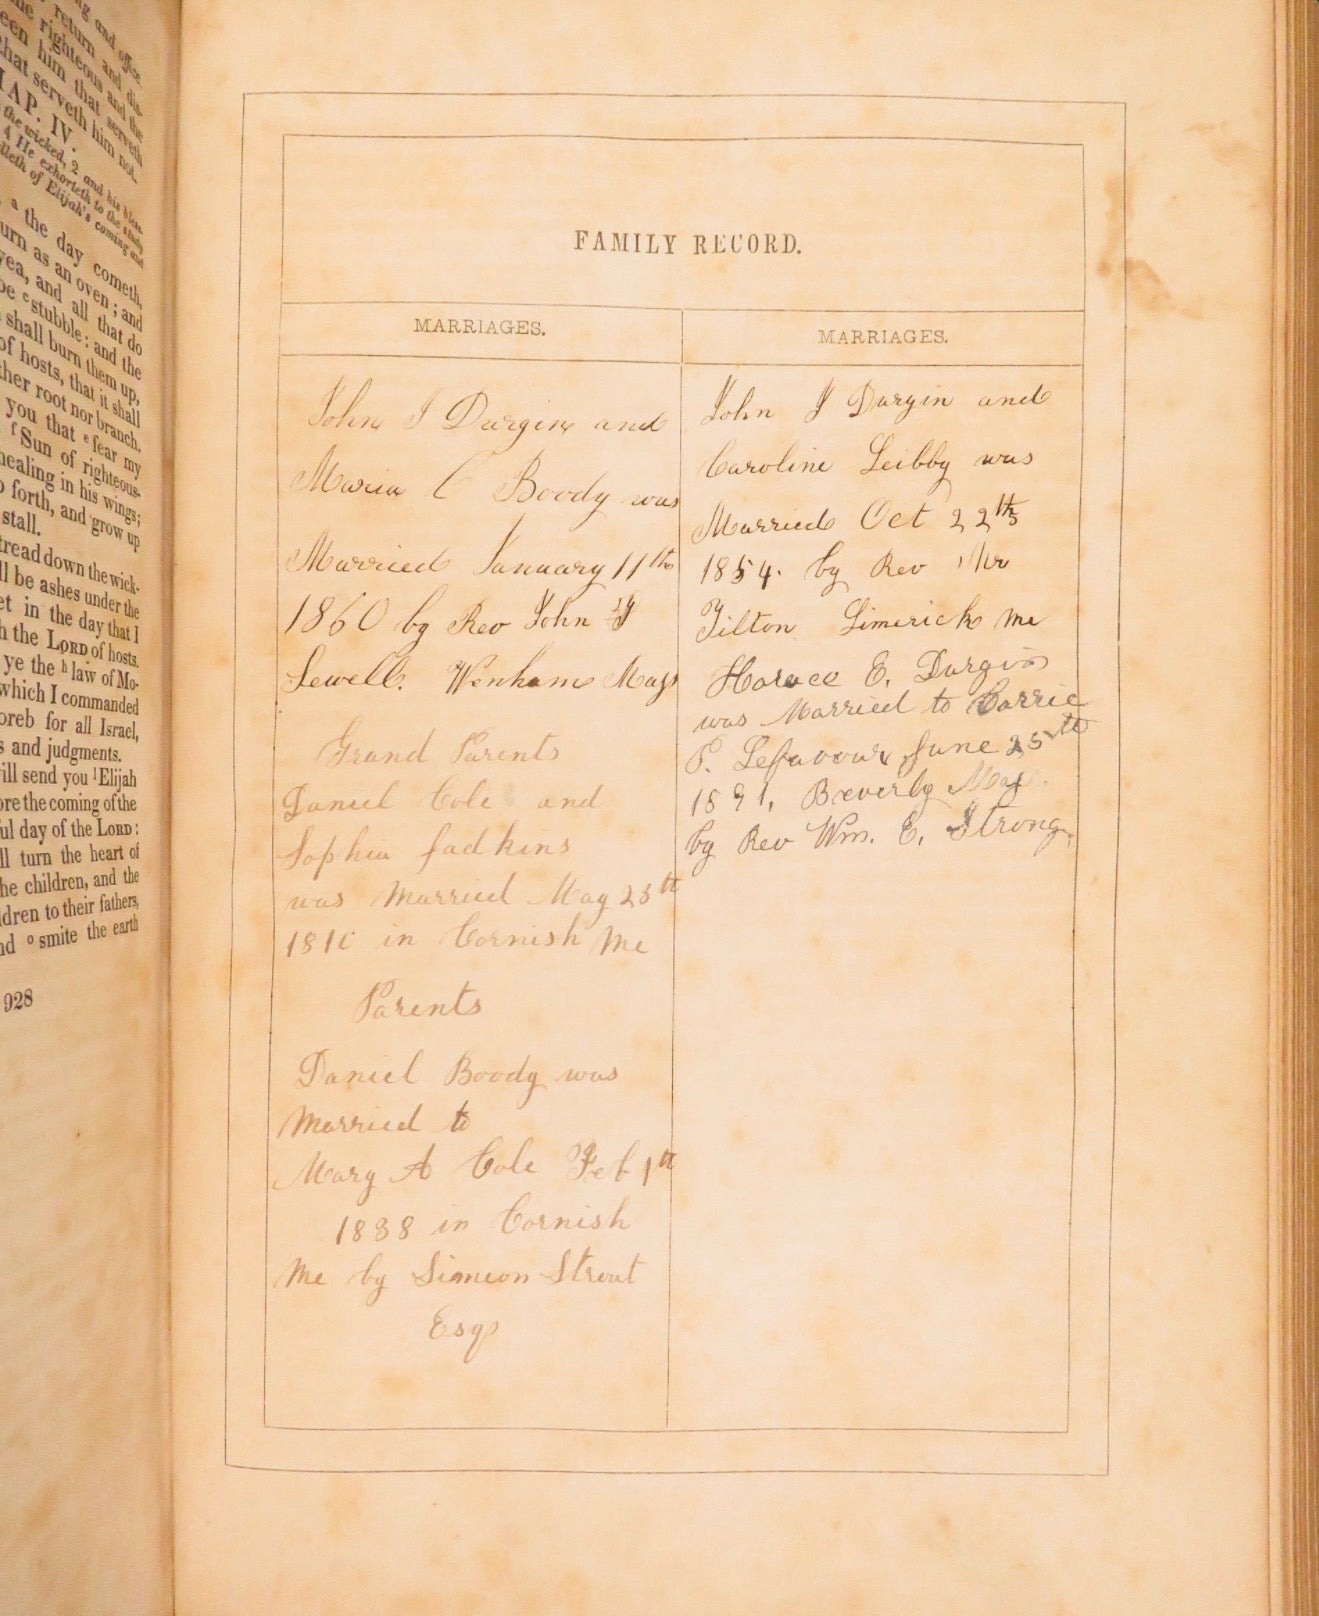 ng and office.
return and dis-
he righteous and the
een him that serveth
that serveth him not.
HAP. IV.
the wicked, 2 and his bless-
4 He exhorteth to the study
telleth of Elijah's coming and
, a the day cometh,
urn as an oven; and
yea, and all that do
be c stubble: and the
shall burn them up,
of hosts, that it shall
ther root nor branch.
you that e fear my
f Sun of righteous-
healing in his wings;
o forth, and grow up
stall.
tread down the wick-
ll be ashes under the
et in the day that I
h the LORD of hosts.
ye the h law of Mo-
which I commanded
oreb for all Israel,
s and judgments.
ill send you l Elijah
ore the coming of the
ful day of the LORD:
ll turn the heart of
he children, and the
dren to their fathers,
nd o smite the earth
928
FAMILY RECORD.
MARRIAGES.
John J Durgin and
Maria C Boody was
Married January 11th
1860 by Rev John
Sewell. Wenham Mass
Grand Parents
Daniel Cole and
Sophia Jadkins
was Married May 25th
1810 in Cornish Me
Parents
Daniel Boody was
Married to
Mary A Cole Feb 1th
1838 in Cornish
Me by Simeon Strout
Esqr
MARRIAGES.
John J Durgin and
Caroline Leibby was
Married Oct 22th
1854. by Rev Mr
Tilton Limerick Me
Horace E. Durgin
was Married to Carrie
P. Lefavour June 25th
1891, Beverly Mass.
by Rev Wm. E. Strong.